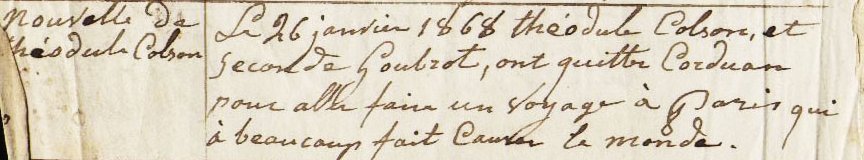 nouvelle de
théodule Colson
Le 26 janvier 1868 théodule Colson, et
Seconde Goubrot, ont quitter Corduan
pour aller faire un voyage à Paris qui
à beaucoup fait Causer le monde.